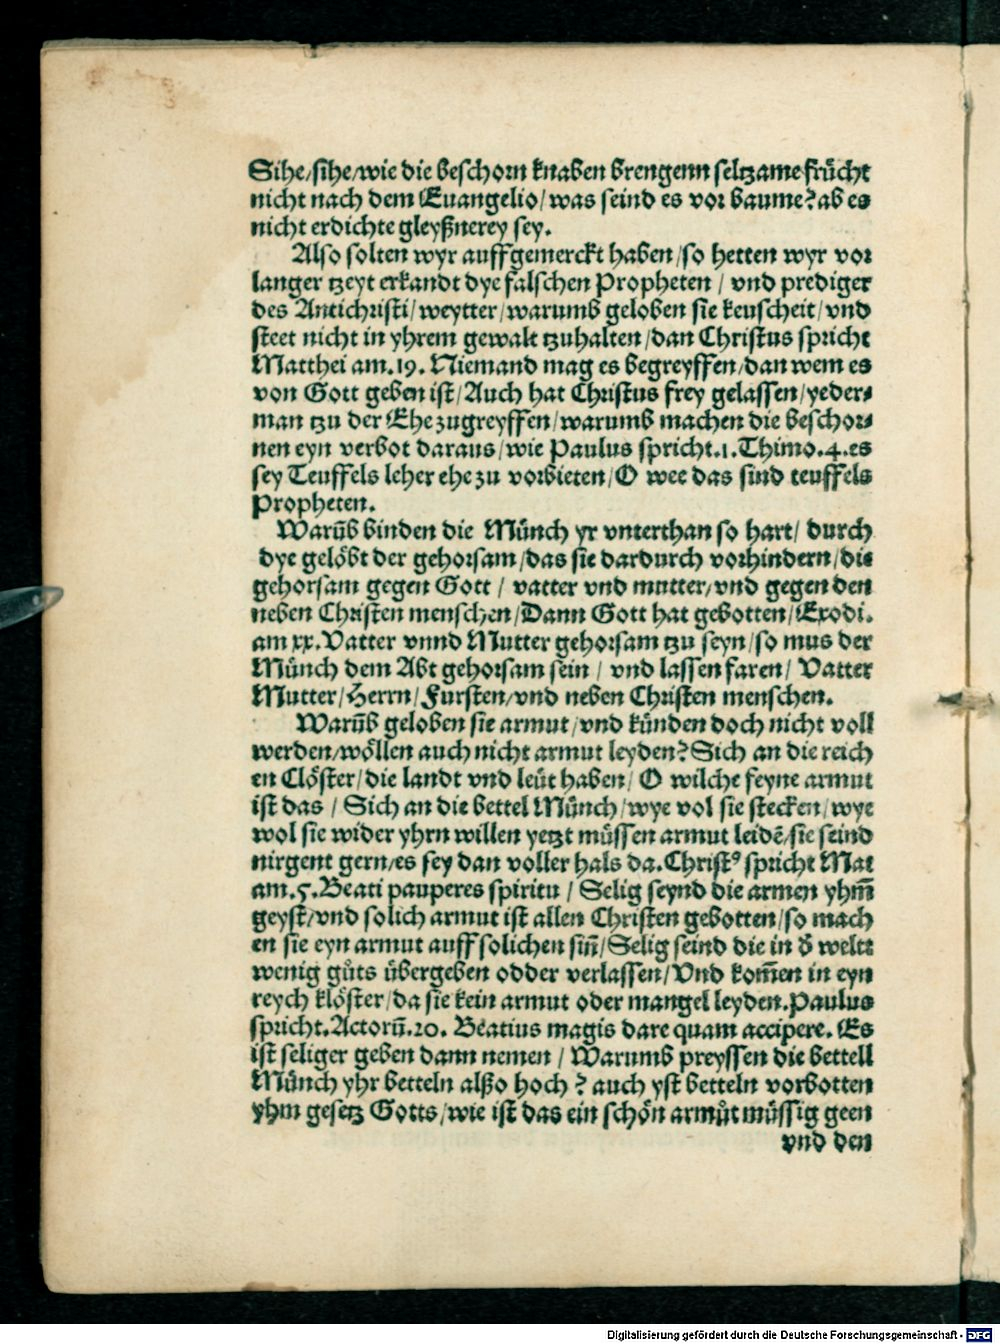 Sihe/sihe/wie die beschorn knaben brengenn seltzame frücht
nicht nach dem Euangelio/ was seind es vor baume? ab es
nicht erdichte gleyßnerey sey.
Also solten wyr auffgemerckt haben/so hetten wyr vor
langer tzeyt erkandt dye falschen Propheten / vnd prediger
des Antichristi/ weytter/ warumb geloben sie keuscheit/ vnd
steet nicht in yhrem gewalt tzuhalten/dan Christus spricht
Matthei am.19. Niemand mag es begreyffen/dan wem es
von Gott geben ist/Auch hat Christus frey gelassen/yeder⸗
man tzu der Ehe zugreyffen/warumb machen die beschor⸗
nen eyn verbot daraus/wie Paulus spricht.1.Thimo.4.es
sey Teuffels leher ehe zu vorbieten/O wee das sind teuffels
Propheten.
Warūb binden die Münch yr vnterthan so hart/ durch
dye gelöbt der gehorsam/das sie dardurch vorhindern/die
gehorsam gegen Gott / vatter vnd mutter/vnd gegen den
neben Christen menschen/Dann Gott hat gebotten/Exodi.
am xx. Vatter vnnd Mutter gehorsam tzu seyn/so mus der
Münch dem Abt gehorsam sein / vnd lassen faren/ Vatter
Mutter/Herrn/Fursten/vnd neben Christen menschen.
Warūb geloben sie armut/vnd künden doch nicht voll
werden/wöllen auch nicht armut leyden? Sich an die reich
en Clöster/die landt vnd leüt haben/ O wilche feyne armut
ist das / Sich an die bettel Münch/wye vol sie stecken/wye
wol sie wider yhrn willen yetzt müssen armut leidē/sie seind
nirgent gern/es sey dan voller hals da.Christꝰ spricht Mat
am.5.Beati pauperes spiritu / Selig seynd die armen yhm̄
geyst/vnd solich armut ist allen Christen gebotten/so mach
en sie eyn armut auff solichen sin̄/Selig seind die in d̄ welt
wenig gůts übergeben odder verlassen/Vnd kom̄en in eyn
reych klöster/da sie kein armut oder mangel leyden.Paulus
spricht.Actorū.20. Beatius magis dare quam accipere. Es
ist seliger geben dann nemen / Warumb preyssen die bettell
Münch yhr betteln alßo hoch? auch yst betteln vorbotten
yhm gesetz Gotts/wie ist das ein schön armůt müssig geen
vnd den
Digitalisierung gefördert durch die Deutsche Forschungsgemeinschaft - DFG